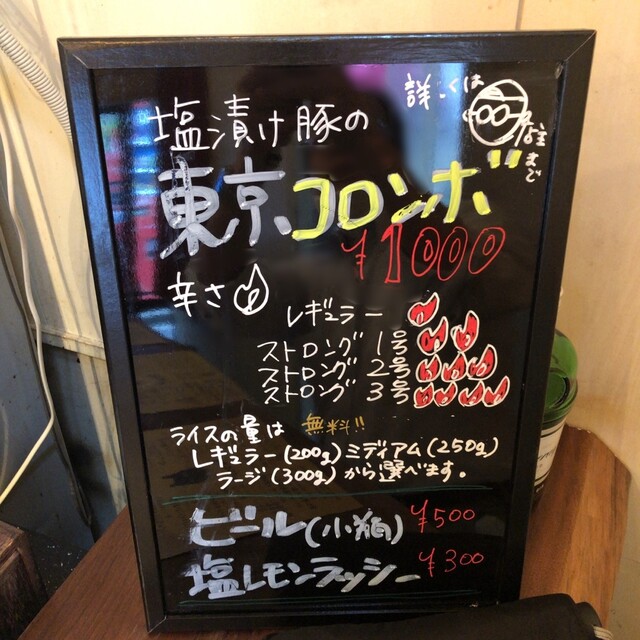 詳しくは
店主まで
塩漬け豚の
東京コロンボ
¥1000
辛さ
レギュラー
ストロング1号
ストロング2号
ストロング3号
ライスの量は 無料!!
レギュラー(200g) ミディアム(250g)
ラージ(300g)から選べます。
ビール(小瓶) ¥500
塩レモンラッシー ¥300